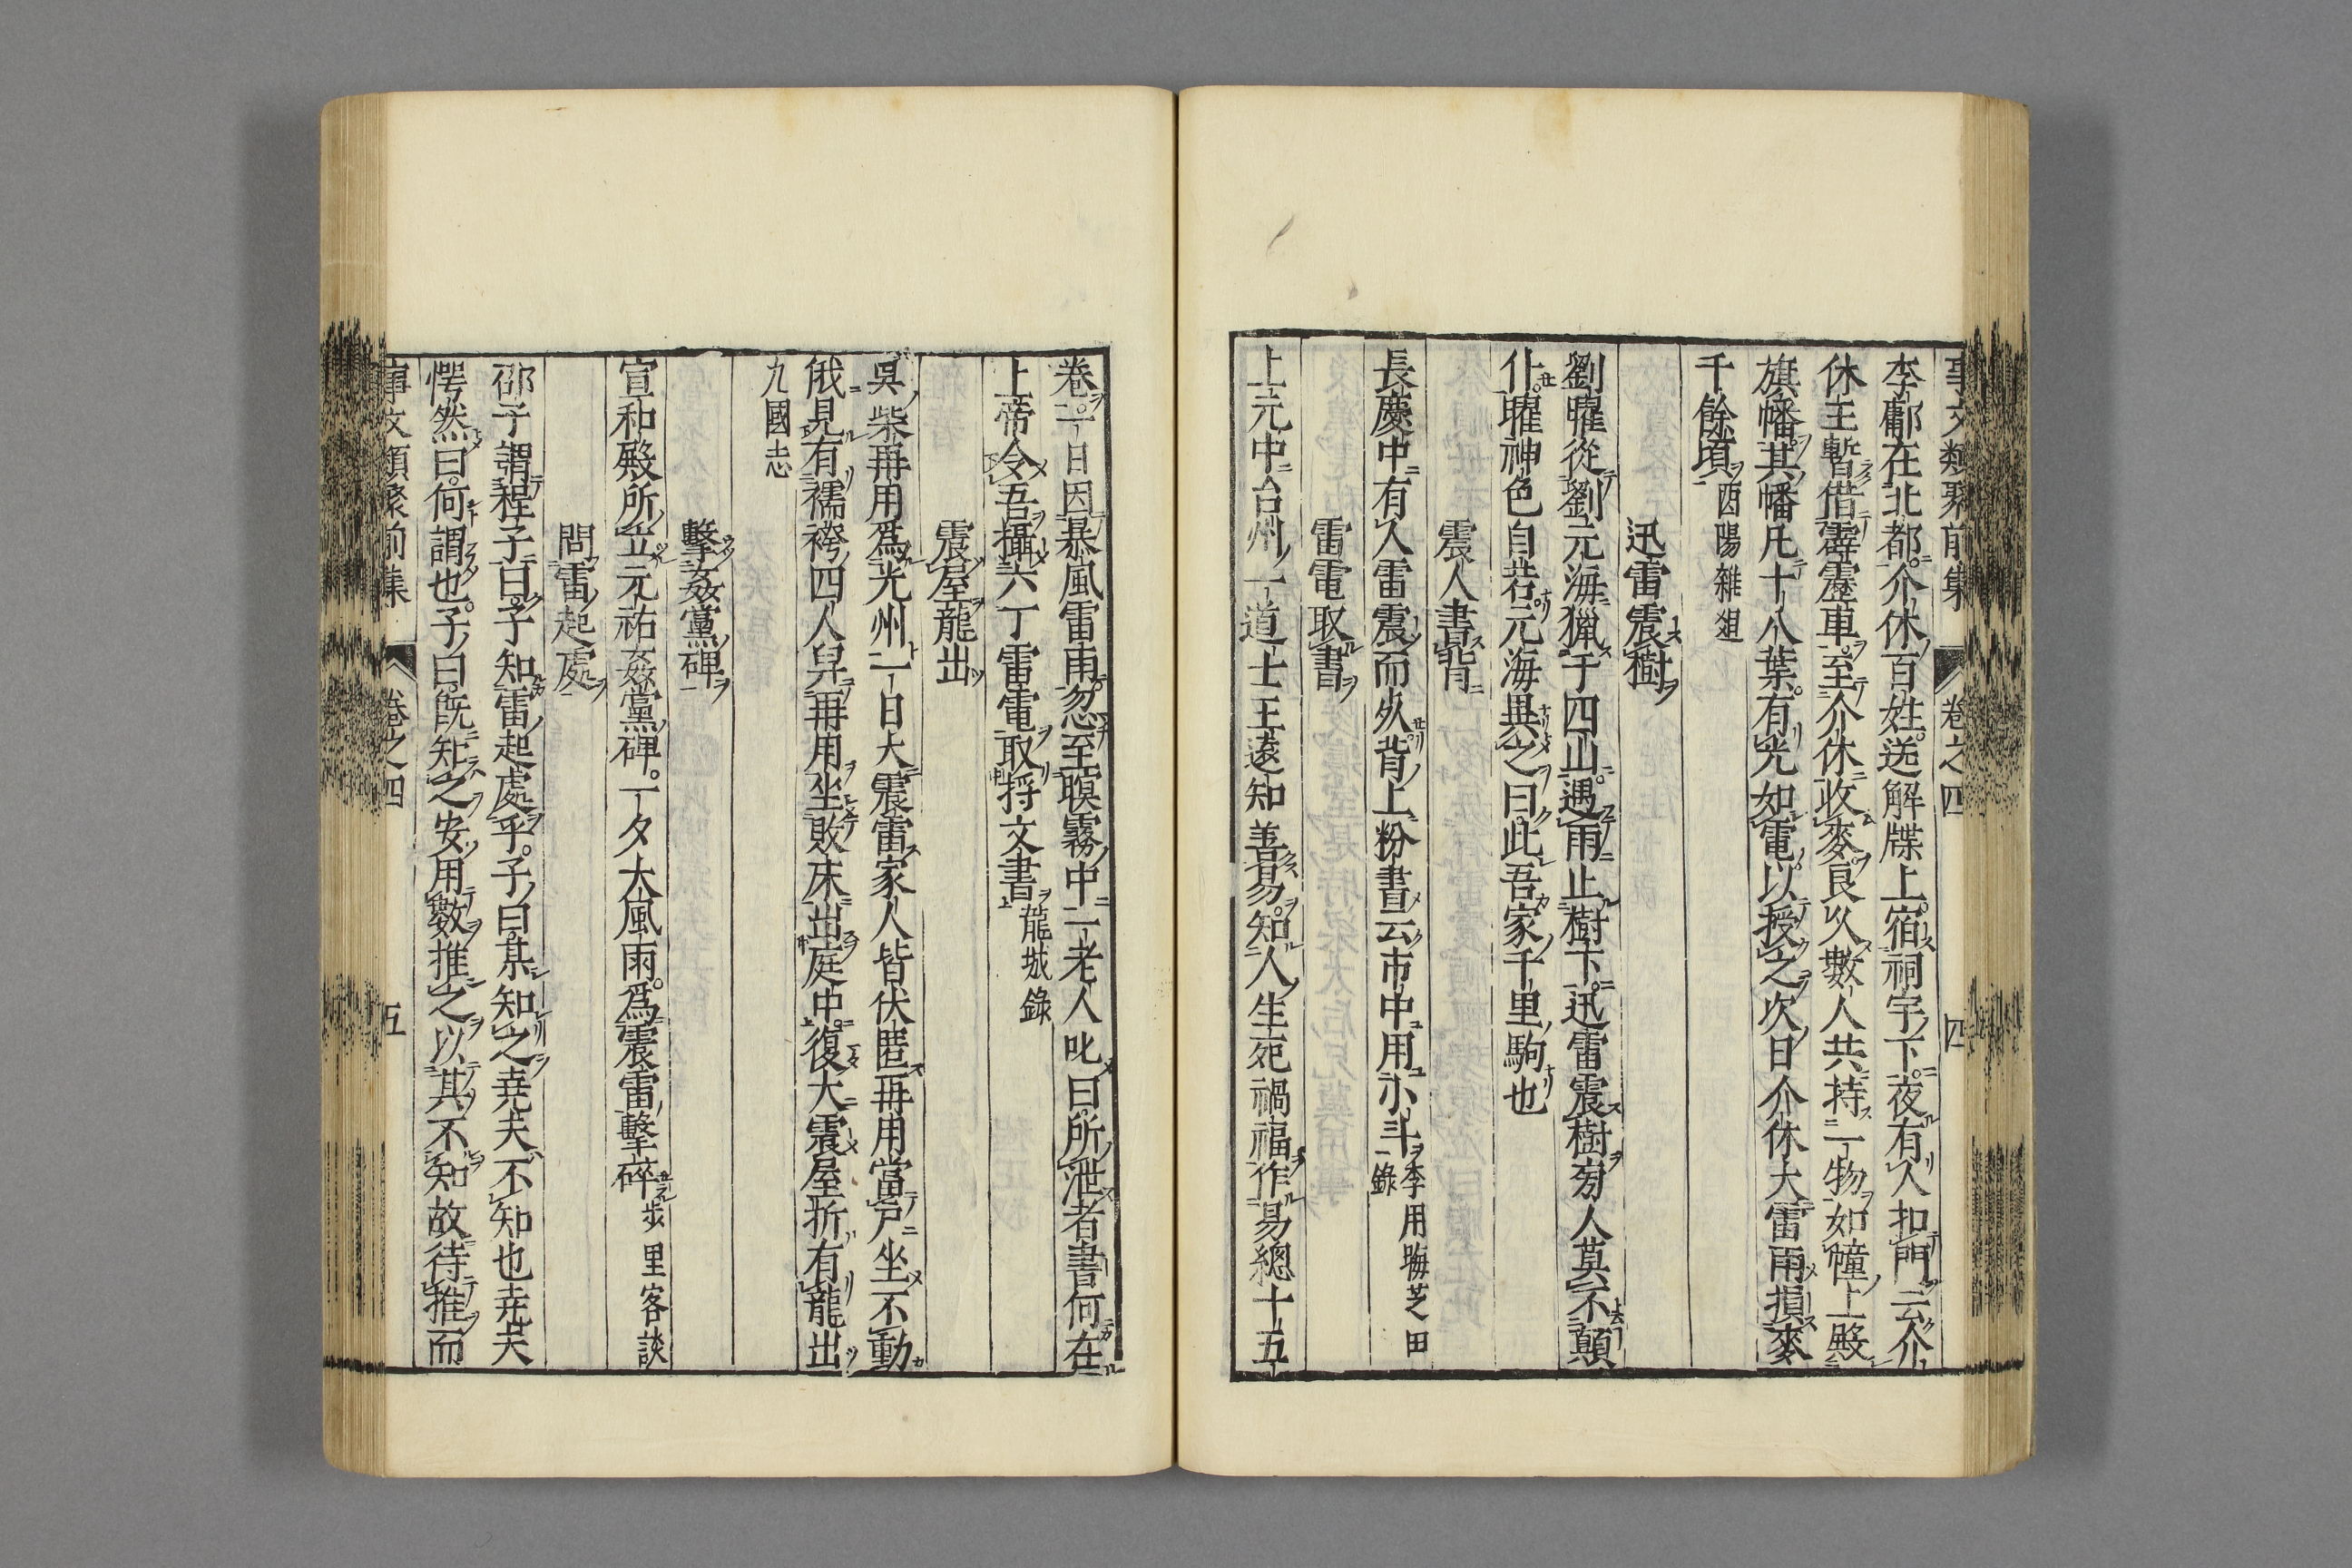 事文類聚前集 卷之四 四
李鄘在北都介休百姓送解牒上宿祠宇下夜有人扣門云介
休王暫借霹靂車至介休收麥良久數人共持一物如幢上殿
旗幡其幡凡十八葉有光如電以授之次日介休大雷雨損麥
千餘頃酉陽雜俎
迅雷震樹
劉曜從劉元海獵于四山遇雨止樹下迅雷震樹旁人莫不顛
仆曜神色自若元海異之曰此吾家千里駒也
震人書背
長慶中有人雷震而死背上粉書云市中用小斗李用晦芝田錄
雷電取書
上元中台州一道士王遠知善易知人生死禍福作易總十五
卷一日因暴風雷雨忽至暝霧中一老人叱曰所泄者書何在
上帝令吾攝六丁雷電取捋文書龍城錄
震屋龍出
吳柴再用爲光州一日大震雷家人皆伏匿再用當戶坐不動
俄見有襦袴四人舁再用坐敗床出庭中復大震屋折有龍出
九國志
擊姦黨碑
宣和殿所立元祐姦黨碑一夕大風雨爲震雷擊碎步里客談
問雷起處
邵子謂程子曰子知雷起處乎子曰某知之堯夫不知也堯夫
愕然曰何謂也子曰既知之安用數推之以其不知故待推而
事文類聚前集 卷之四 五